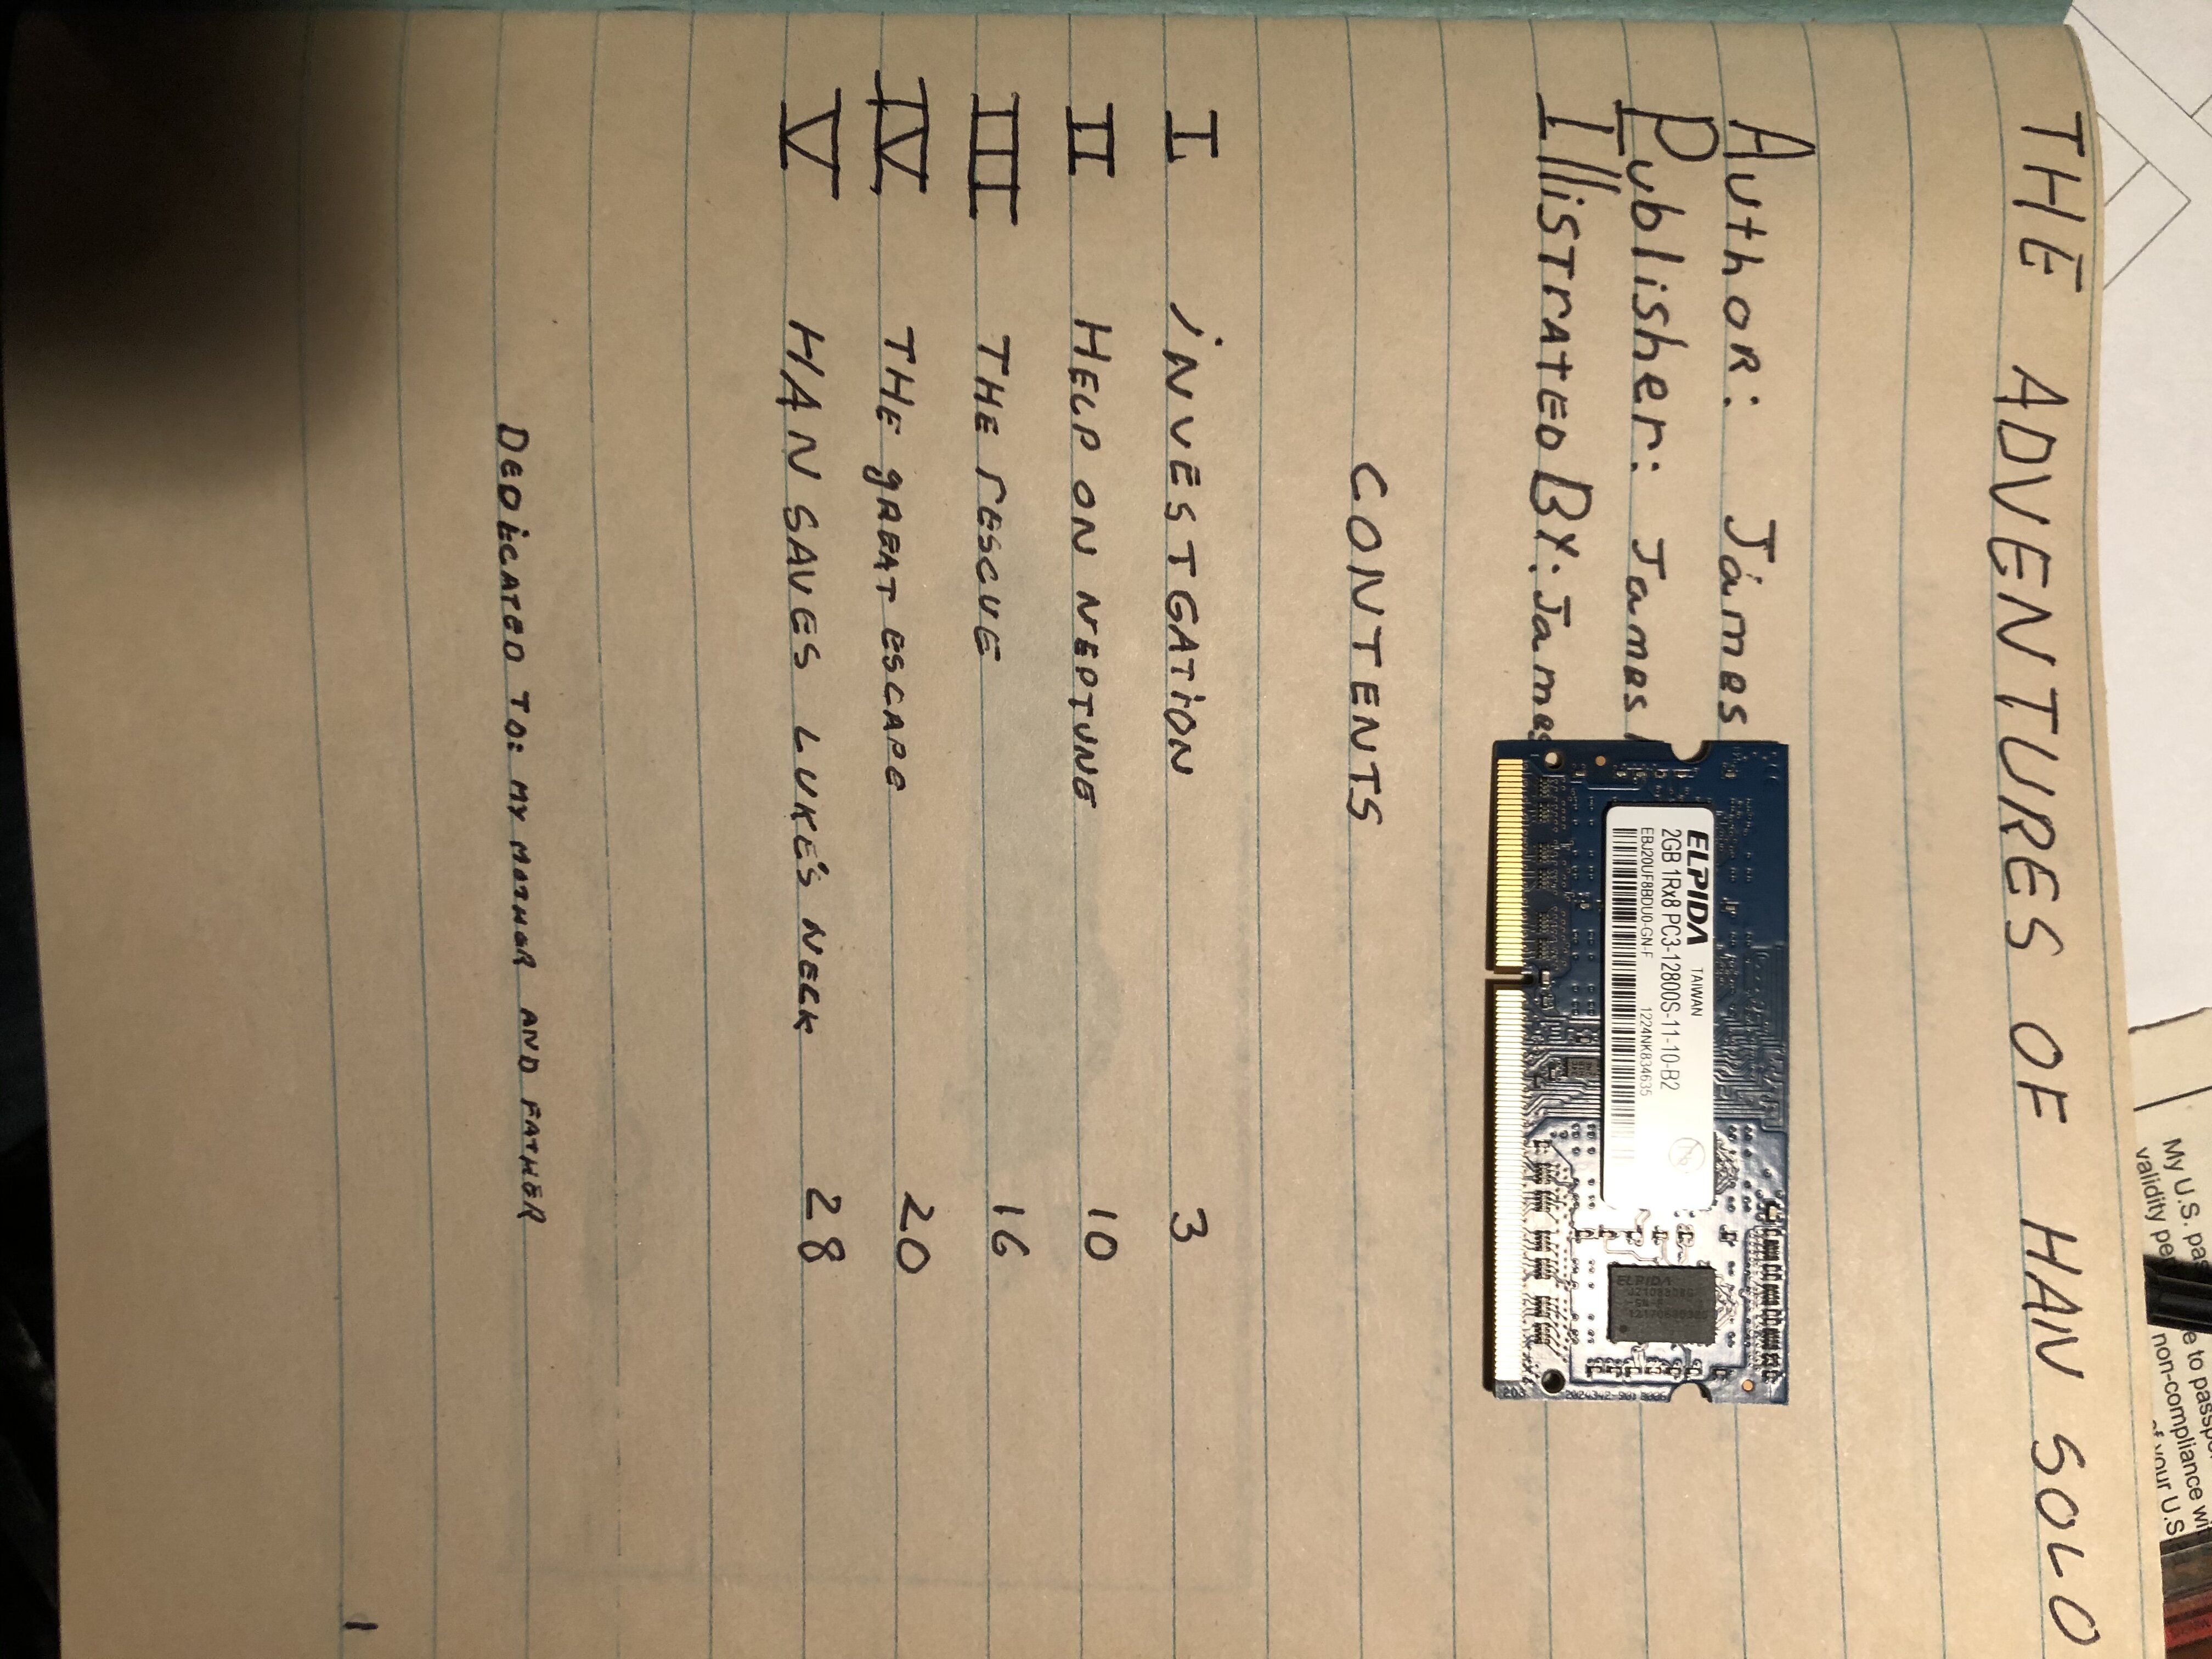 THE ADVENTURES OF HAN SOLO
Author: James
Publisher: James
IllisTRATED BY: James
CONTENTS
I iNVESTGATiON 3
II HELP ON NEPTUNE 10
III THE rESCUE 16
IV THE gREAT ESCAPE 20
V HAN SAVES LUKE'S NECK 28
DEDiCATED TO: MY MOTHER AND FATHER
1
ELPIDA TAIWAN
2GB 1Rx8 PC3-12800S-11-10-B2
EBJ20UF8BDU0-GN-F 1224NK834635
ELPIDA
203
My U.S. pas
validity pe
e to passp
non-compliance wi
of your U.S